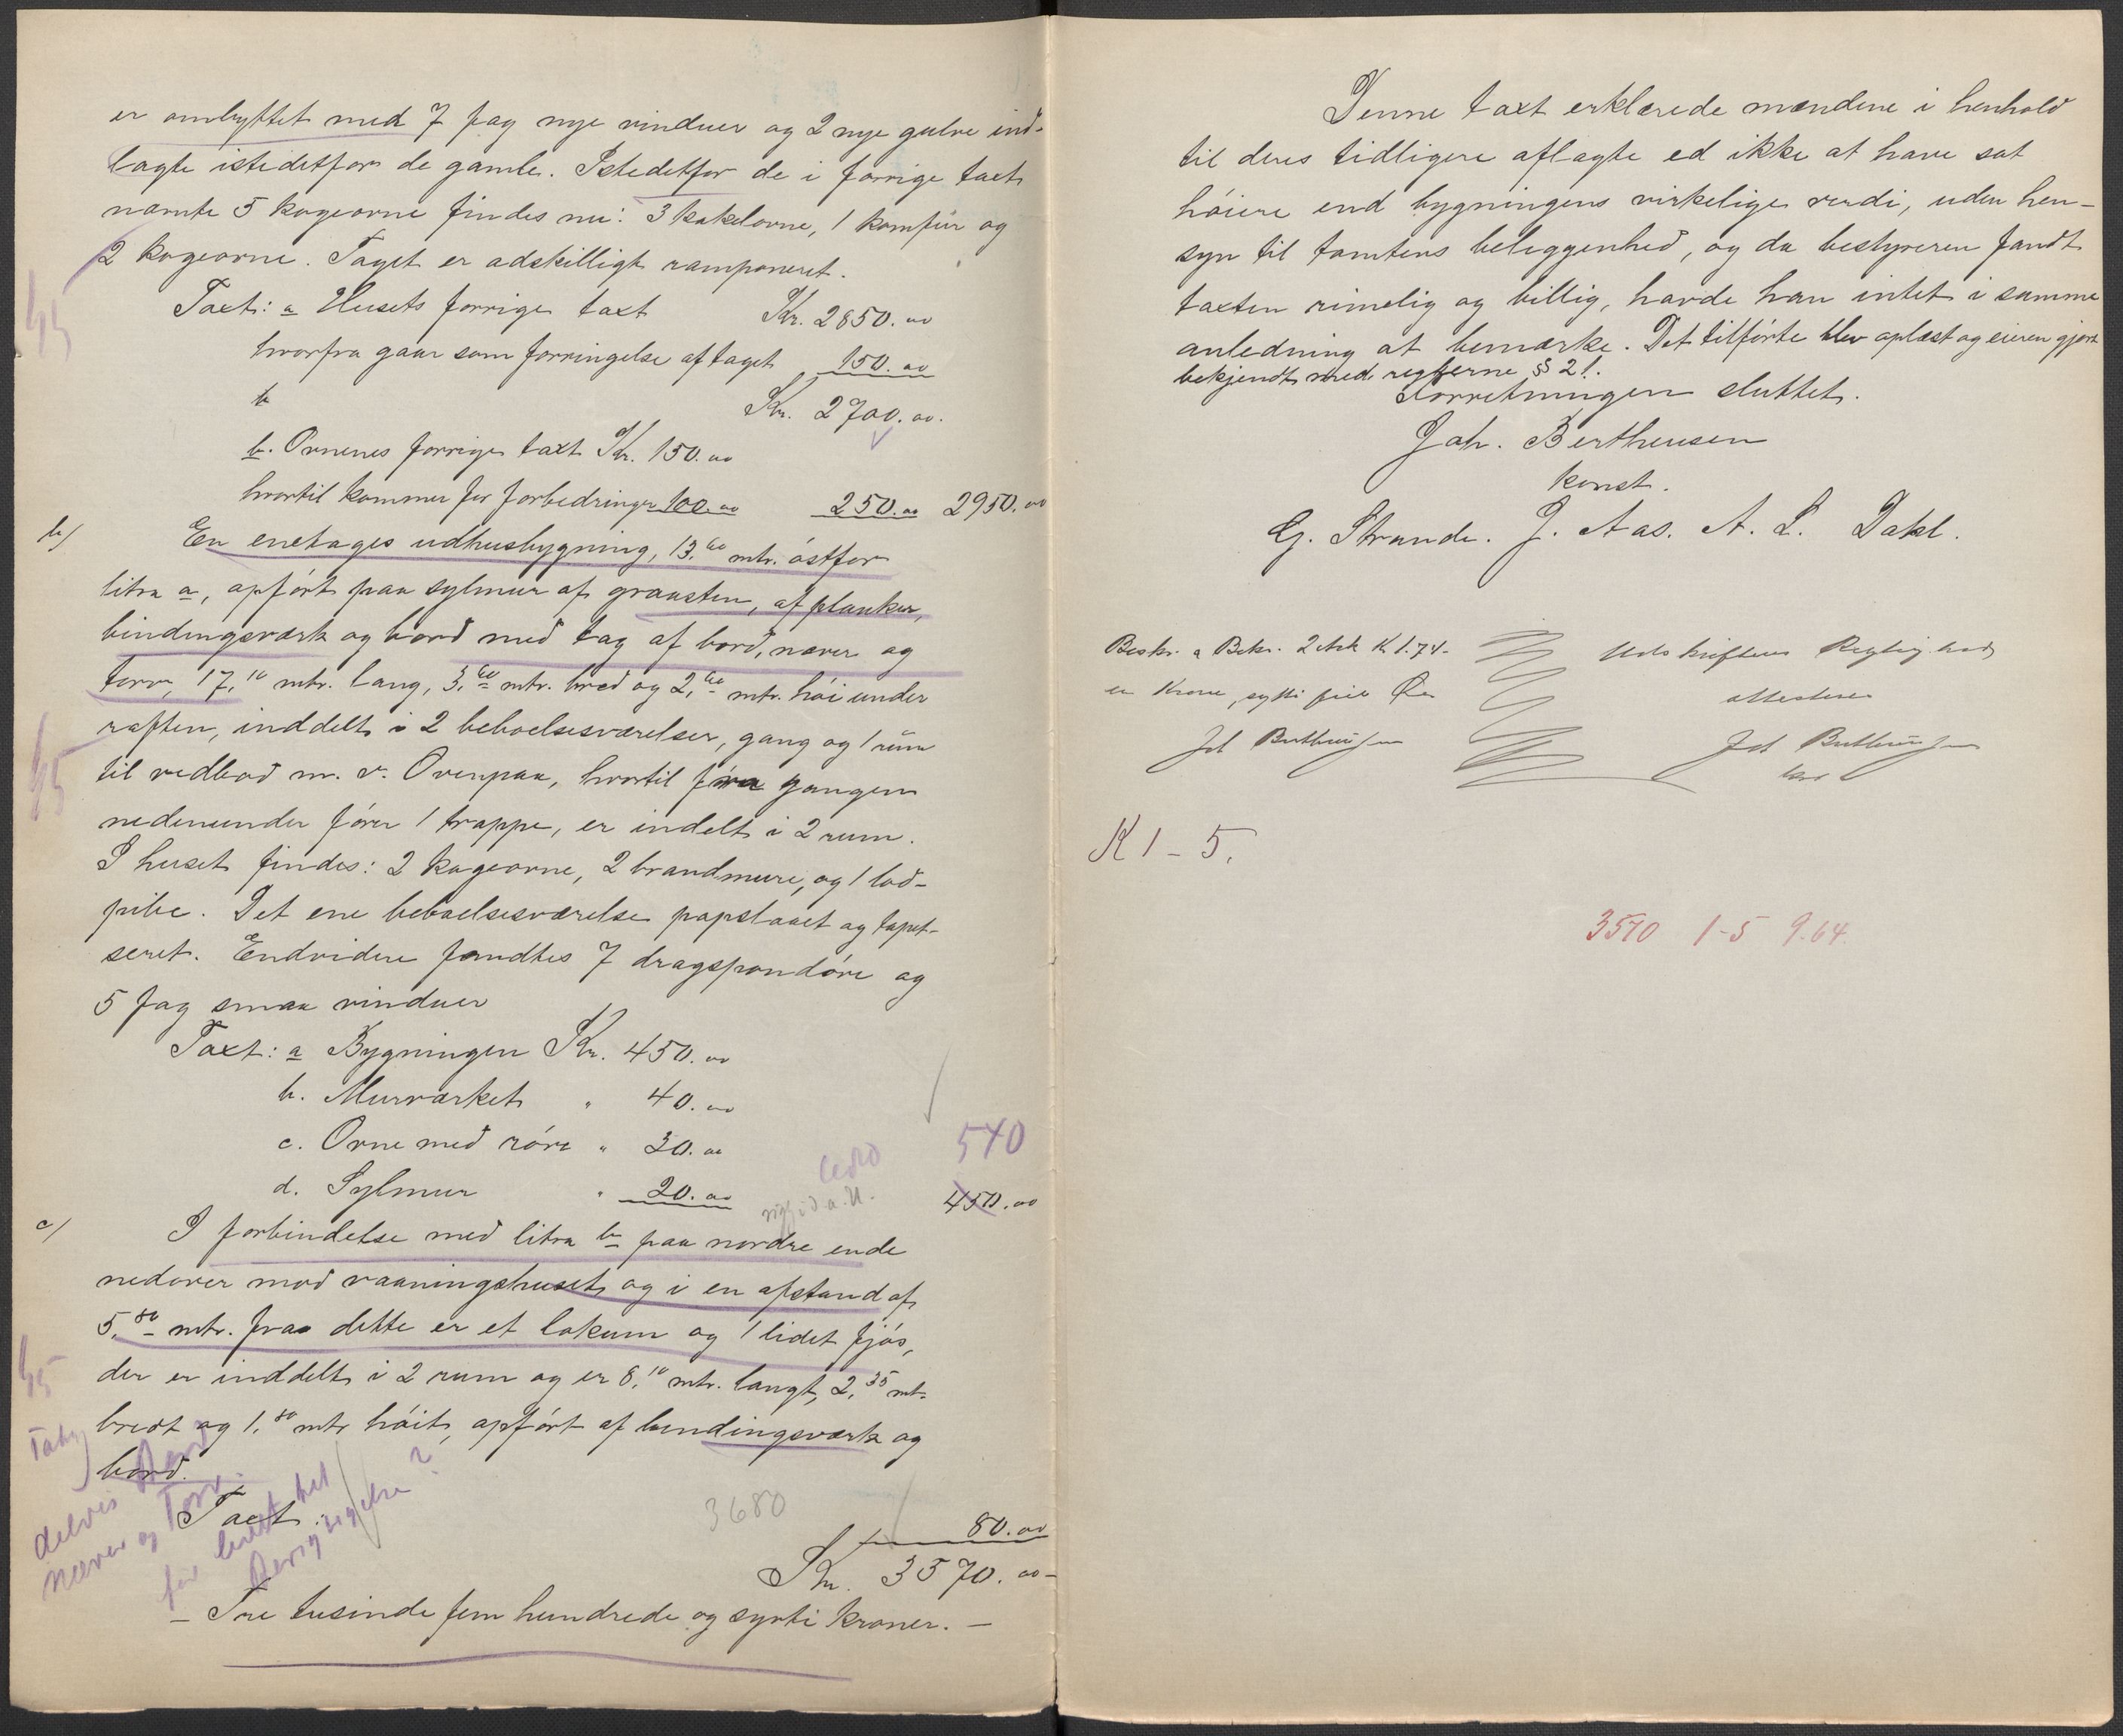 er ombyttet med 7 fag nye vinduer og 2 nye gulve ind-
lagte istedetfor de gamle. Istedetfor de i forrige taxt
nævnte 5 kogeovne findes nu: 3 kakelovne, 1 komfür og
2 kogeovne. Taget er adskilligt ramponeret.
Taxt: a Husets forrige taxt Kr. 2850.00
hvorfra gaar som forringelse af taget 150.00
b Kr. 2700.00.
b. Ovnenes forrige taxt Kr. 150.00
hvortil kommer for forbedringer 100.00 250.00 2950.00
b/ En enetages udhusbygning, 13.60 mtr. østfor
litra a, opført paa sylmur af graasten, af planker,
bindingsværk og bord med tag af bord, næver og
torv, 17.10 mtr. lang, 3.60 mtr. bred og 2.60 mtr. høi under
raften, inddelt i 2 beboelsesværelser, gang og 1 rüm
til vedbod m. v. Ovenpaa, hvortil fra gangen
nedenunder fører 1 trappe, er indelt i 2 rum.
I huset findes: 2 kogeovne, 2 brandmure, og 1 lod-
pibe. Det ene beboelsesværelse papslaaet og tapet-
seret. Endvidere fandtes 7 dragspondøre og
5 fag smaa vinduer
Taxt: a Bygningen Kr. 450.00
b. Murværket " 40.00
c. Ovne med røre " 30.00
540
d. Sylmur " 20.00 450.00
c/ I forbindelse med litra b paa nordre ende
nedover mod vaaningshuset og i en afstand af
5.80 mtr. fra dette er et lokum og 1 lidet fjøs,
der er inddelt i 2 rum og er 8.10 mtr. langt, 2.35 mt.
bredt og 1.80 mtr høit, opført af bindingsværk og
bord.
delvis
næver og Torv.
Taxt: 3680
80.00
Kr. 3570.00 -
- Tre tusinde fem hundrede og sytti kroner. -
Denne taxt erklærede mændene i henhold
til deres tidligere aflagte ed ikke at have sat
høiere end bygningens virkelige verdi, uden hen-
syn til tomtens beliggenhed, og da bestyreren fandt
taxten rimelig og billig, havde han intet i samme
anledning at bemærke. Det tilførte blev oplæst og eieren gjort
bekjendt med reglerne § 21.
Forretningen sluttet.
Joh. Bertheusen
konst.
G. Strande. J. Aas. A. L. Dahl.
Beskr. a Bekr. 2 Ark Kr 1.74-
en Krone, sytti fire Øre
Joh Bertheusen
Udskriftens Rigtighed
attesteres
Joh Bertheusen
konst
K 1 - 5.
3570 1-5 9.64.